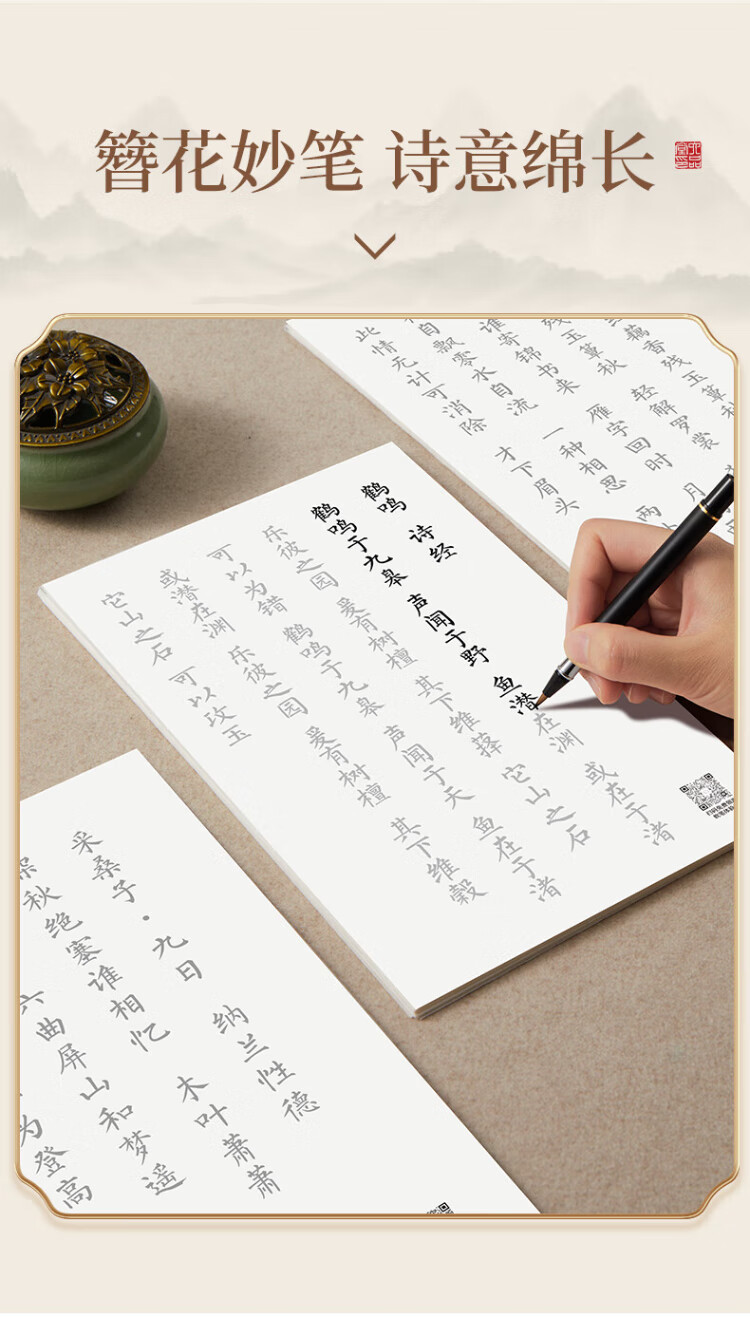 簪花妙笔 诗意绵长
藕香残玉簟秋
残玉簟秋 轻解罗裳
谁寄锦书来 雁字回时 月
自飘零水自流 一种相思 两
此情无计可消除 才下眉头
鹤鸣 诗经
鹤鸣于九皋 声闻于野 鱼潜在渊 或在于渚
乐彼之园 爰有树檀 其下维萚 它山之石
可以为错 鹤鸣于九皋 声闻于天 鱼在于渚
或潜在渊 乐彼之园 爰有树檀 其下维榖
它山之石 可以攻玉
采桑子·九日 纳兰性德
深秋绝塞谁相忆 木叶萧萧
六曲屏山和梦遥
为登高